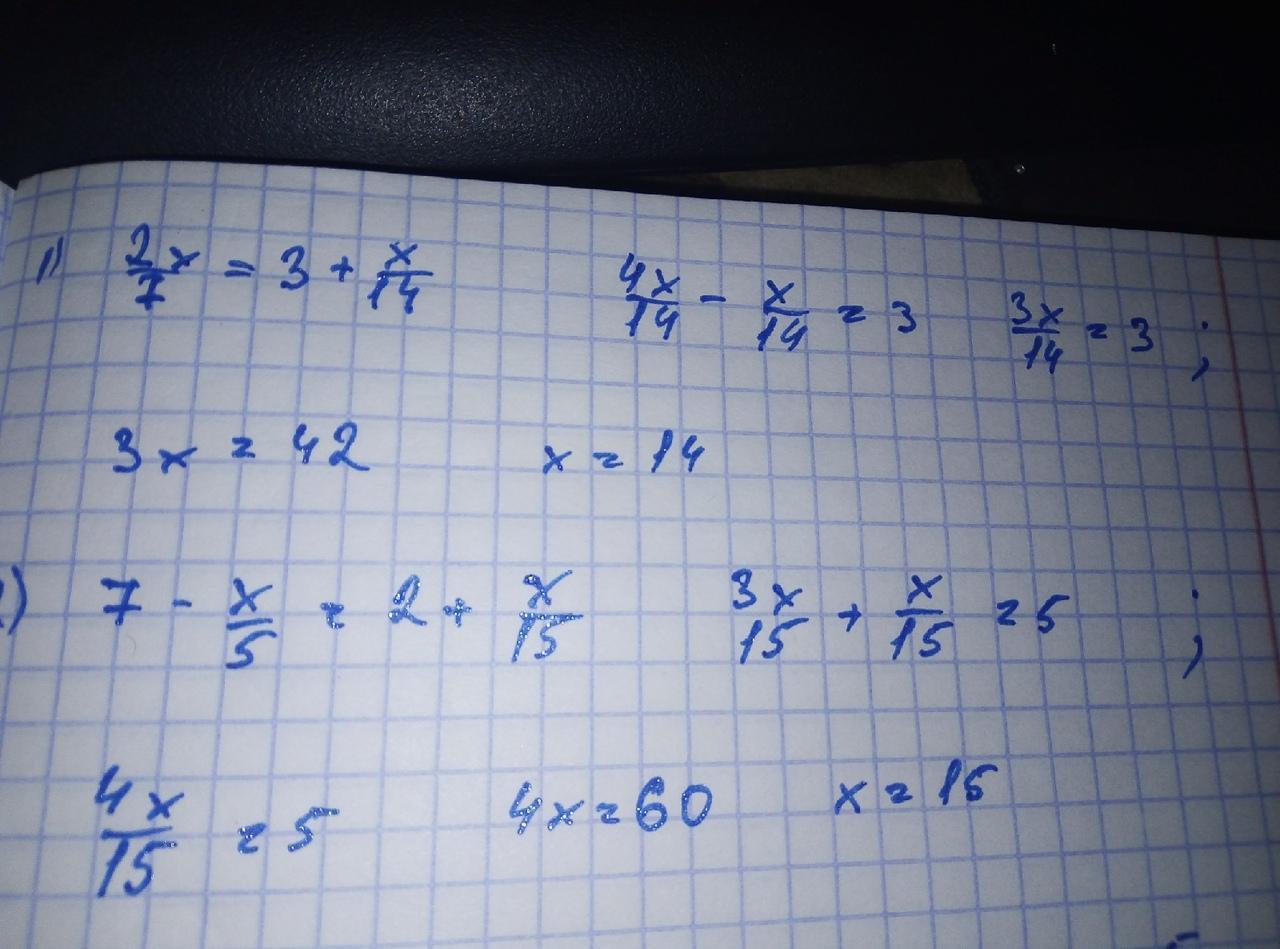 1) 2/7 x = 3 + x/14   4x/14 - x/14 = 3   3x/14 = 3 ;
3x = 42   x = 14
) 7 - x/5 = 2 + x/15   3x/15 + x/15 = 5 ;
4x/15 = 5   4x = 60   x = 15